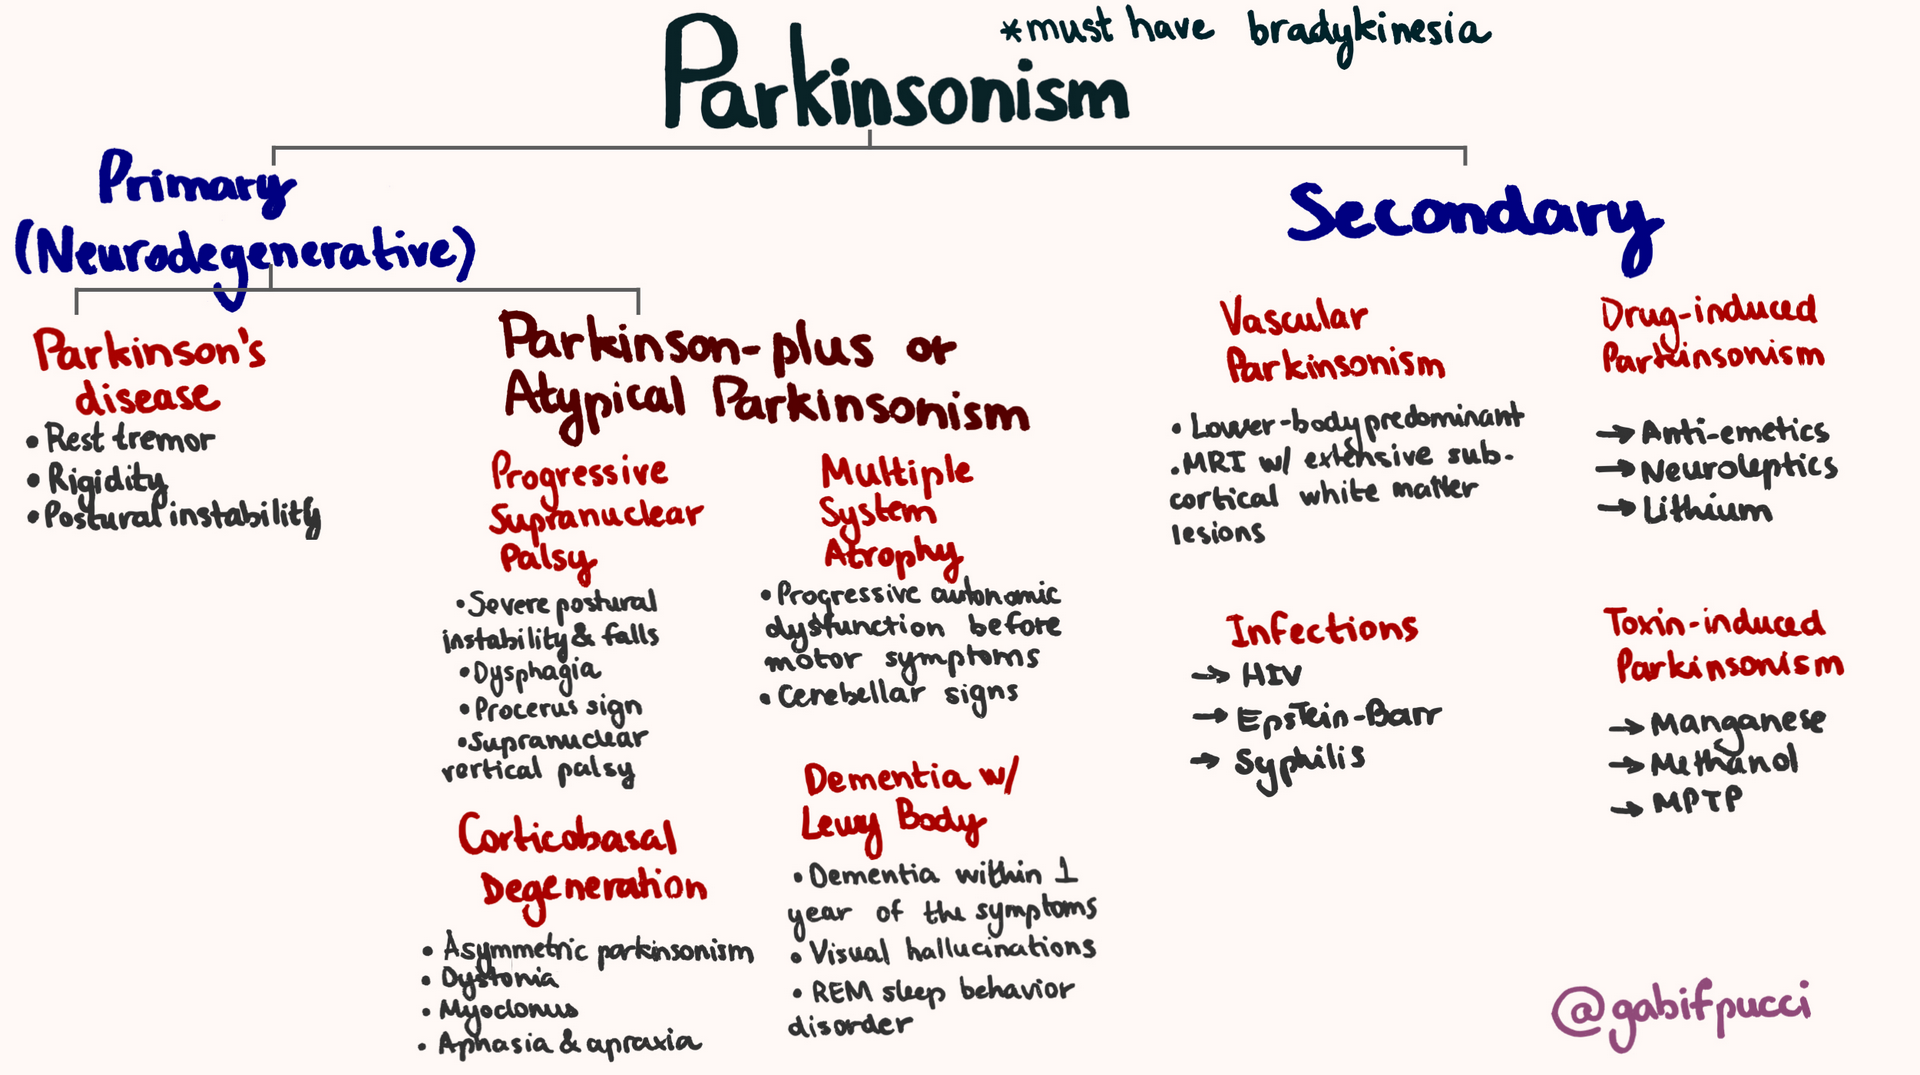 Parkinsonism
*must have bradykinesia
Primary
(Neurodegenerative)
Parkinson's
disease
• Rest tremor
• Rigidity
• Postural instability
Parkinson-plus or
Atypical Parkinsonism
Progressive
Supranuclear
Palsy
• Severe postural
instability & falls
• Dysphagia
• Procerus sign
• Supranuclear
vertical palsy
Multiple
System
Atrophy
• Progressive autonomic
dysfunction before
motor symptoms
• Cerebellar signs
Corticobasal
Degeneration
• Asymmetric parkinsonism
• Dystonia
• Myoclonus
• Aphasia & apraxia
Dementia w/
Lewy Body
• Dementia within 1
year of the symptoms
• Visual hallucinations
• REM sleep behavior
disorder
Secondary
Vascular
Parkinsonism
• Lower-body predominant
• MRI w/ extensive sub-
cortical white matter
lesions
Drug-induced
Parkinsonism
→ Anti-emetics
→ Neuroleptics
→ Lithium
Infections
→ HIV
→ Epstein-Barr
→ Syphilis
Toxin-induced
Parkinsonism
→ Manganese
→ Methanol
→ MPTP
@gabifpucci